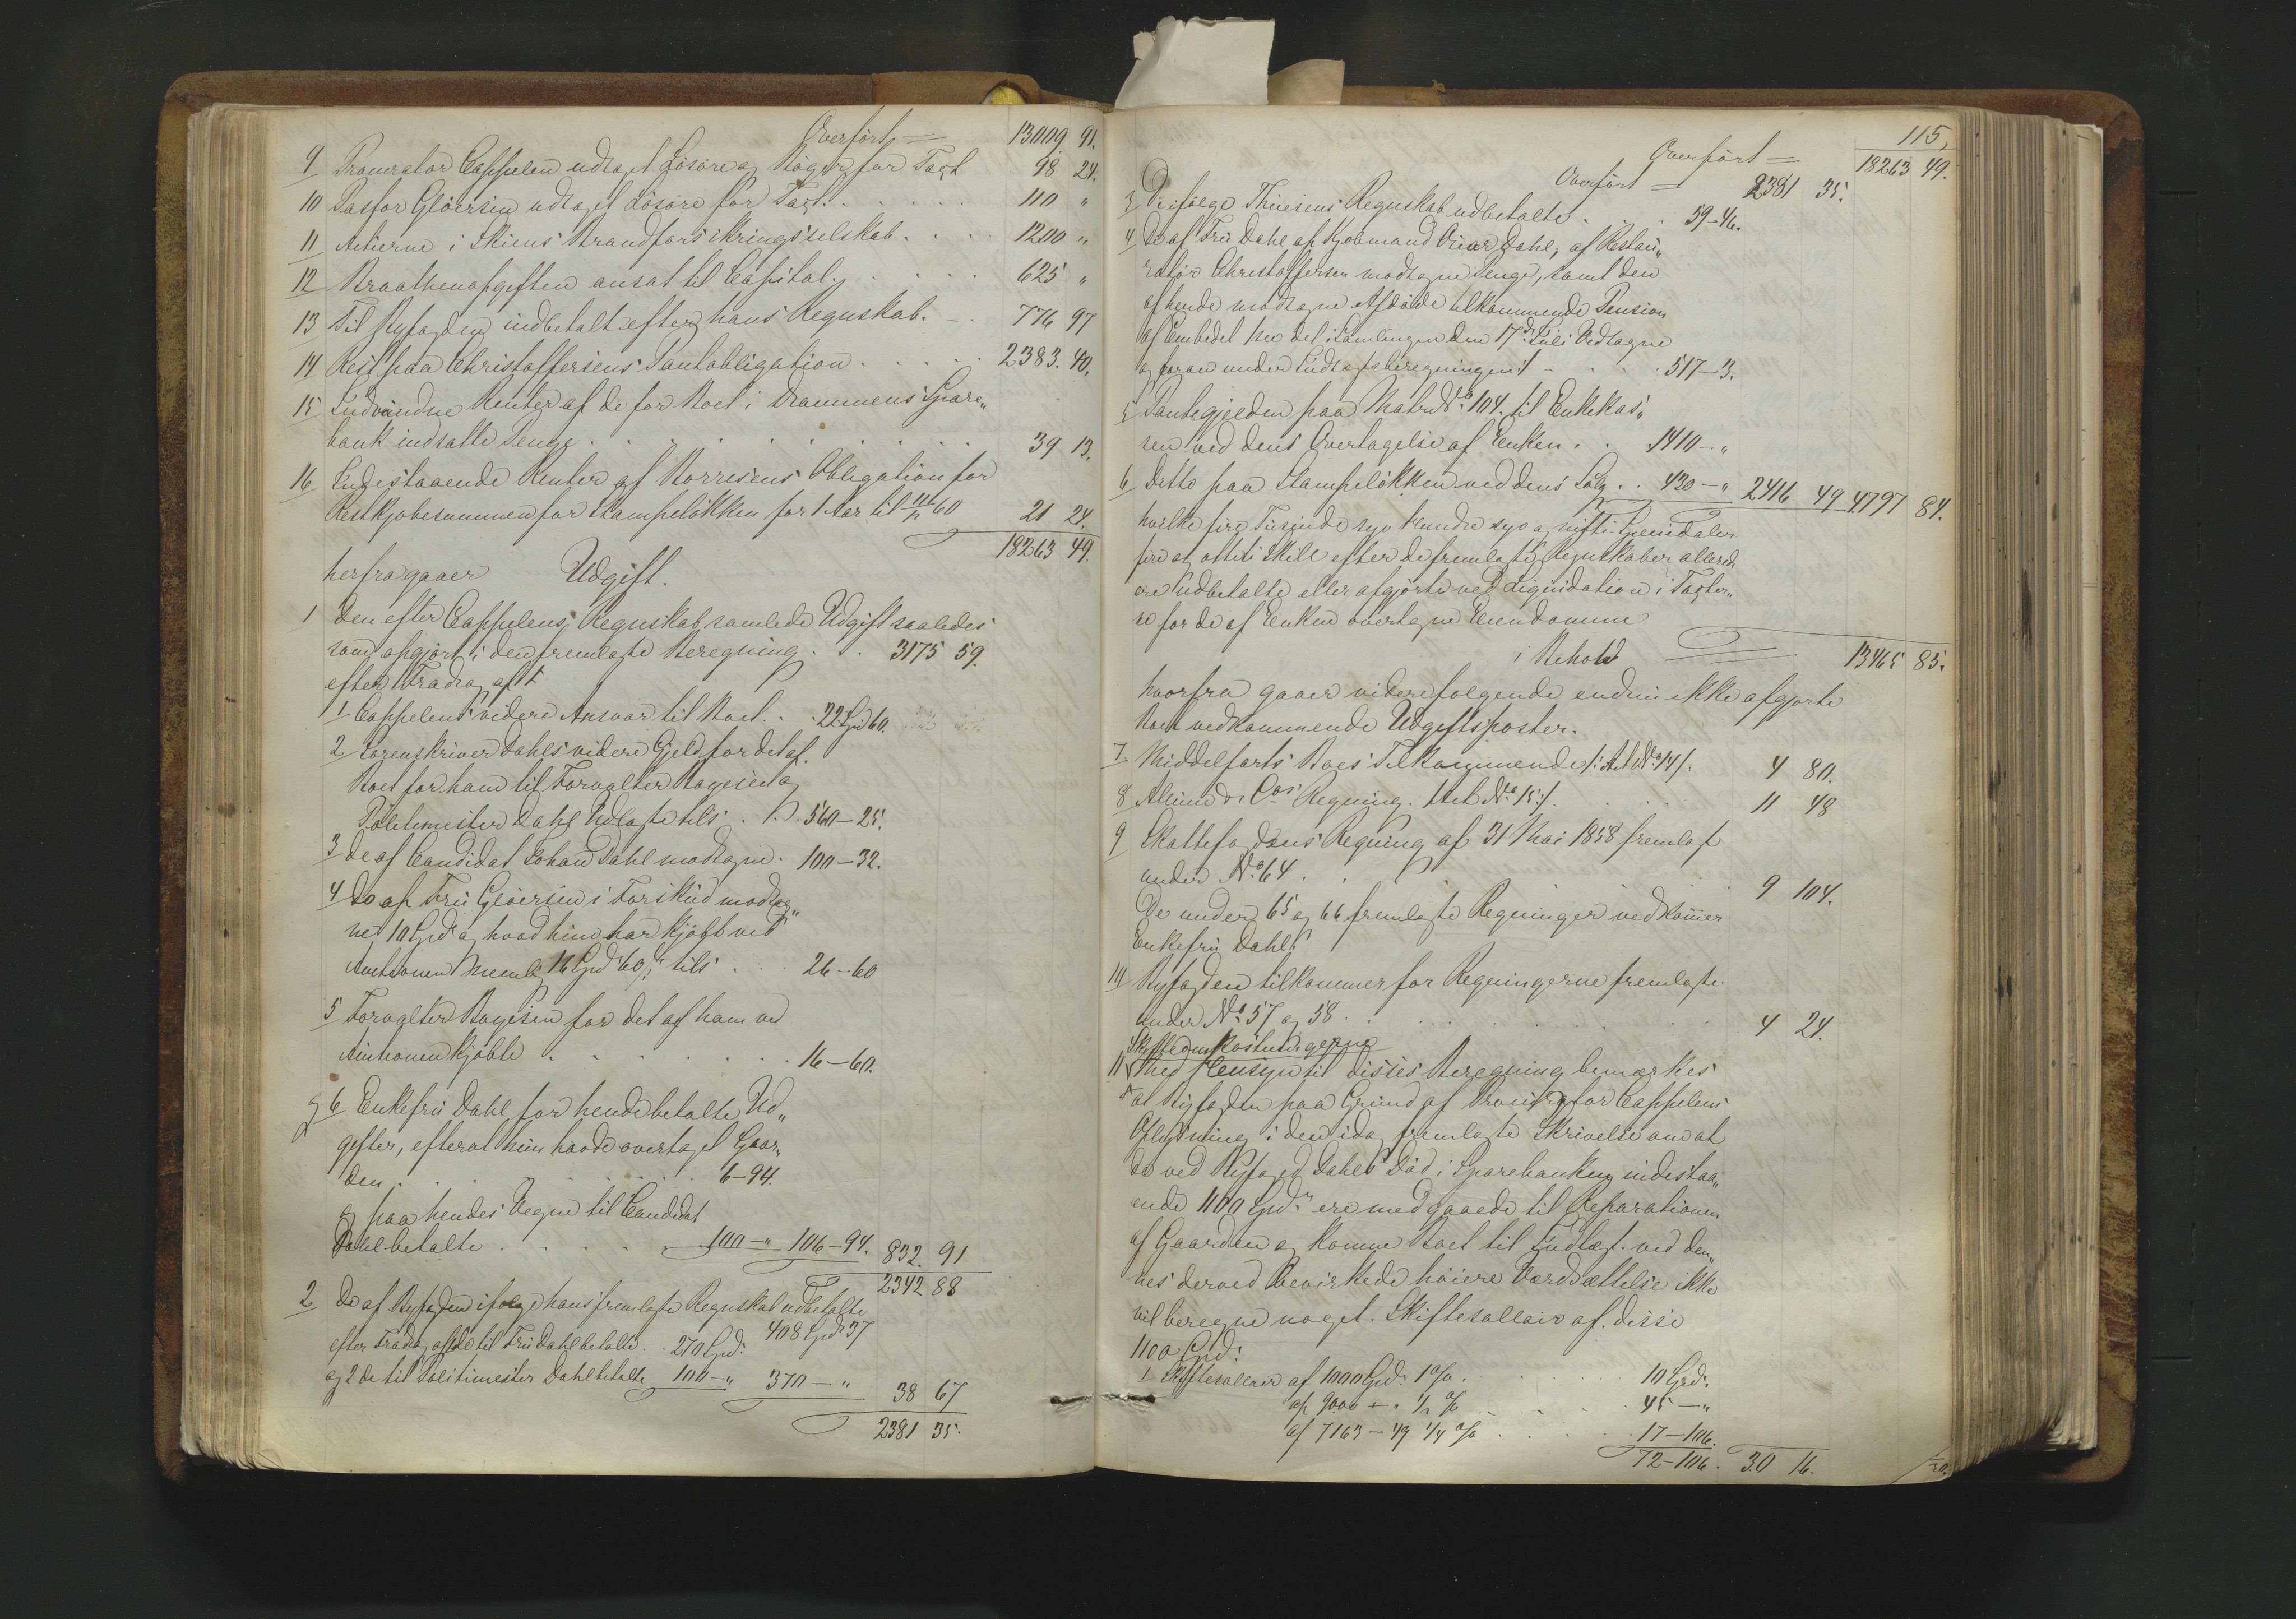 Overført = 13009 91.
9 Procurator Cappelen udtaget Løsøre og Bøger for Taxt 98 24.
10 Pastor Gløersen udtaget Løsøre for Taxt. . . . . . 110 "
11 Actierne i Skiens Brandforsikringsselskab. . . . 1200 "
12 Braathenafgiften ansat til Capital. . . . . 625 "
13 Til Byfogden indbetalt efter hans Regnskab. . 776 97
14 Rest paa Christoffersens Pantobligation . . . . . 2383. 40.
15 Indvundne Renter af de for Boet i Drammens Spare„
bank indsatte Penge . . . . . . . . . . 39 13.
16 Indestaaende Renter af Borresens Obligation for
Restkjøbesummen for Stampeløkken for 1 Aar til 11/12 60 21 24.
18263 49.
herfra gaaer Udgift.
1 Den efter Cappelens Regnskab samlede Udgift saaledes
som opgjort i den fremlagte Beregning . . 3175 59.
efter Fradrag af:
1 Cappelens videre Ansvar til Boet. . . 22 Spd 60.
2 Sorenskriver Dahls videre Gjeld for det af
Boet for ham til Forvalter Boyesen og
Politimester Dahl Udlagte tils . . 560 – 25.
3 de af Candidat Johan Dahl modtagne. 100 – 32.
4 Do af Fru Gløersen i Forskud modtag„
ne 10 Spd og hvad hun har kjøbt ved
Auctionen nemlig 16 Spd 60 ; tils . . . 26 – 60
5 Forvalter Boyesen for det af ham ved
Auctionen kjøbte . . . . . . . 16 – 60.
og 6 Enkefru Dahl for hende betalte Ud„
gifter, efterat hun havde overtaget Gaar„
den . . . . . . . . 6 – 94.
og paa hendes Vegne til Candidat
Dahl betalte . . . . . 100 – " 106 – 94. 832. 91
2342 88
2 De af Byfogden ifølge hans fremlagte Regnskab udbetalte
408 Spd 37
efter Fradrag af de til Fru Dahl betalte . . 270 Spd.
og 2 de til Politimester Dahl betalte 100 – " 370 – " 38 67
2381 35.
115,
Overført = 18263 49.
Overført = 2381 35.
3 De ifølge Thuesens Regnskab udbetalte . . . . 59 – 46.
4 Do af Fru Dahl af Kjøbmand Dahl, af Restau„
ratør Christoffersen modtagne Penge, samt den
af hende modtagne Afdøde tilkommende Pension
af Embedet see det i Samlingen den 17de Juli Vedtagne
og foran under Indtægtsberegningen 1 . . . . 517 – 3.
5 Pantegjelden paa Matr No 104. til Enkekas„
sen ved dens Overtagelse af Enken . . 1410 – "
6 Ditto paa Stampeløkken ved dens Salg . . 430 – " 2416 49 4797 84.
hvilke fire Tusinde syv hundre syv og nitti Speciedaler
fire og ottiti Skill efter de fremlagte Regnskaber allerede
ere Udbetalte eller afgjorte ved Liqvidation i Taxter„
ne for de af Enken overtagne Eiendomme
i Behold 13465 85.
hvorfra gaaer videre følgende endnu ikke afgjorte
Boet vedkommende Udgiftsposter.
7 Middelfarts Boes Tilkommende /: Act No 14/. 4 80.
8 & Cos Regning. /Act No 15:/. . . . . 11 48
9 Skattefogdens Regning af 31 Mai 1858 fremlagt
under No 64 . . . . . . . 9 104.
De under 65 og 66 fremlagte Regninger vedkommer
Enkefru Dahl.
10 Byfogden tilkommer for Regningerne fremlagte
under No 57 og 58 . . . . . . . 4 24.
Skifteomkostningerne
11 Med Hensyn til disses Beregning bemærkes
at Byfogden paa Grund af Procurator Cappelens
Oplysning i den idag fremlagte Skrivelse om at
de ved Byfoged Dahls Død i Sparebanken indestaa„
ende 1100 Spdr ere medgaaede til Reparationen
af Gaarden og komme Boet til Indtægt ved den„
nes derved bevirkede høiere Værdsættelse ikke
vil beregne noget Skiftesallair af disse
1100 Spd.
1 Skiftesallair af 1000 Spd. 1 % . . . . . 10 Spd.
af 9000 – " 1/2 % . . . . 45 – "
af 7163 – 49 1/4 % . . . . 17 – 106.
72 – 106. 30 16.